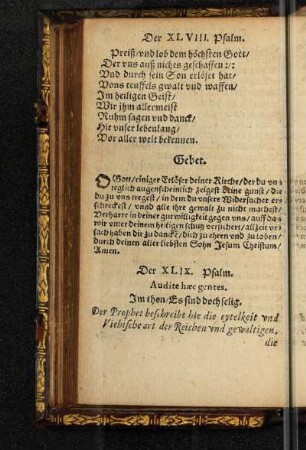 Der XLVIII. Psalm.
Preiß/vnd lob dem höchsten Gott/
Der vns auß nichts geschaffen:/:
Vnd durch sein Son erlöset hat/
Vons teuffels gwalt vnd waffen/
Im heiligen Geist/
Wir ihm allermeist
Ruhm sagen vnd danck/
Hie vnser lebenlang/
Vor aller welt bekennen.
Gebet.
O Gott/einiger Erlöser deiner Kirche/der du vn
treglich augenscheinlich zeigest deine gunst/die
du zu vns tregest/in dem du vnsere Widersacher er-
schreckest/vnnd alle ihre gewalt zu nicht machest/
Verharre in deiner gutwilligkeit gegen vns/auff daß
wir vnter deinem heiligen schutz versichert/allzeit vr-
sach haben dir zu danckē/dich zu ehren vnd zu loben/
durch deinen aller liebsten Sohn Jesum Christum/
Amen.
Der XLIX. Psalm.
Audite hæc gentes.
Im thon/Es sind doch selig.
Der Prophet beschreibt hie die eytelkeit vnd
Viehische art der Reichen vnd gewaltigen,
die